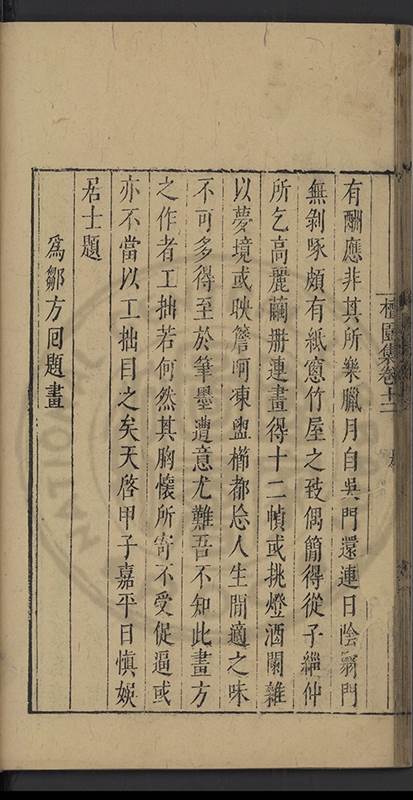 檀園集卷十二
有酬應非其所樂臘月自吳門還連日陰翳門
無剝啄頗有紙窻竹屋之致偶簡得從子緇仲
所乞高麗繭冊連畫得十二幀或挑燈酒闌雜
以夢境或映簷呵凍盥櫛都忘人生閒適之味
不可多得至於筆墨遭意尤難吾不知此畫方
之作者工拙若何然其胸懷所寄不受促逼或
亦不當以工拙目之矣天啓甲子嘉平日慎娛
居士題
爲鄒方回題畫